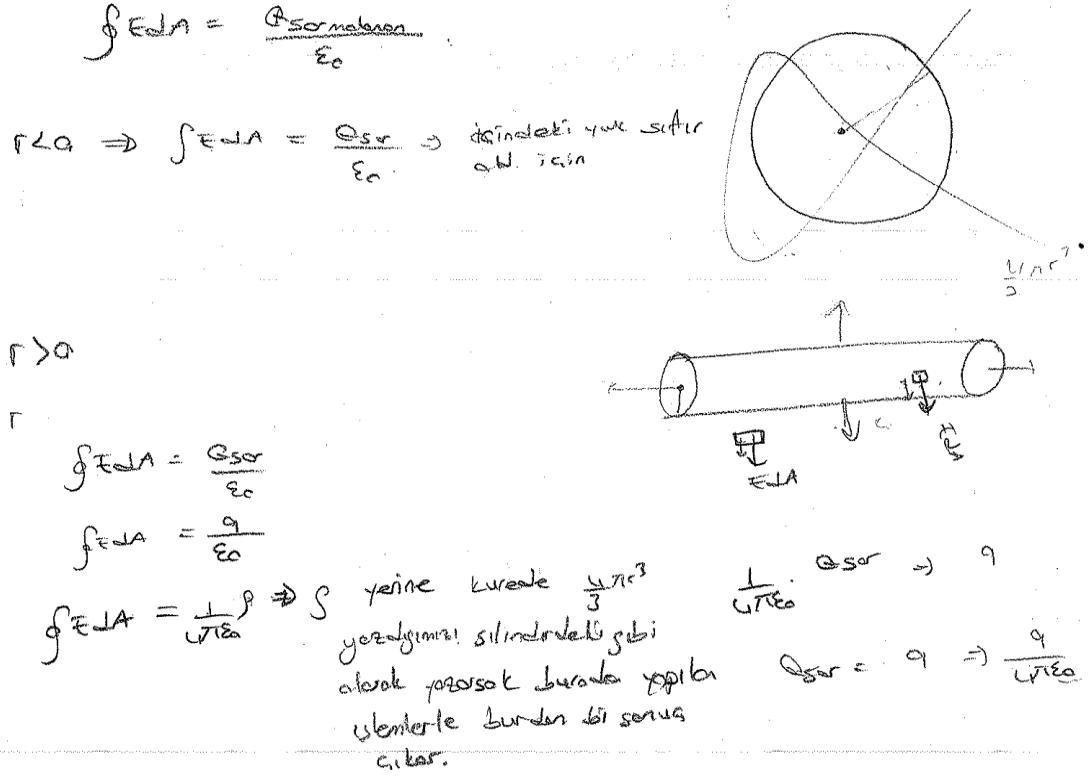 ∮EdA = Qsarmalanan / ε₀
r<a ⇒ ∫EdA = Qsar / ε₀ ⇒ içindeki yük sıfır
old. için
4/3 πr³
r>a
r
EdA
∮EdA = Qsar / ε₀
∮EdA = q / ε₀
∮EdA = 1/4πε₀ ρ ⇒ ρ yerine kürede 4/3 πr³
yazdığımızı silindirdeki gibi
alarak yazarsak burada yapılan
işlemlerle burdan bi sonuç
çıkar.
1/4πε₀ . Qsar ⇒ q
Qsar = q ⇒ q / 4πε₀